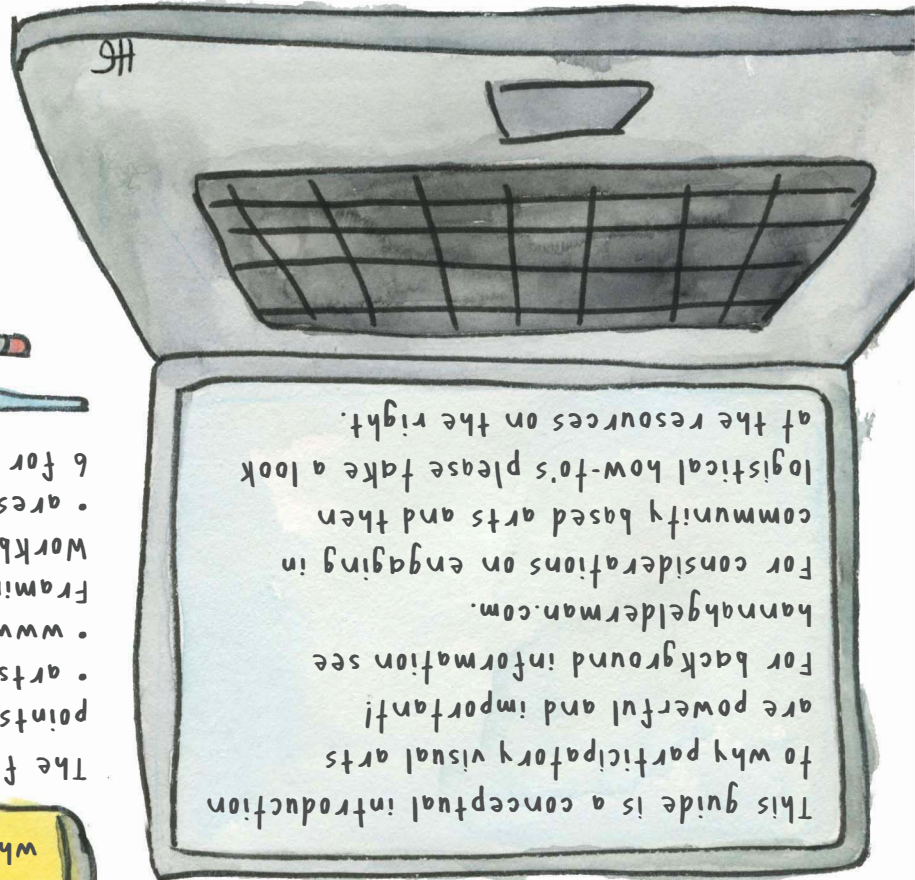 This guide is a conceptual introduction
to why participatory visual arts
are powerful and important!
For background information see
hannahgelderman.com.
For considerations on engaging in
community based arts and then
logistical how-to's please take a look
at the resources on the right.
HG
The f
points
• arts
Workb
• ares
6 for